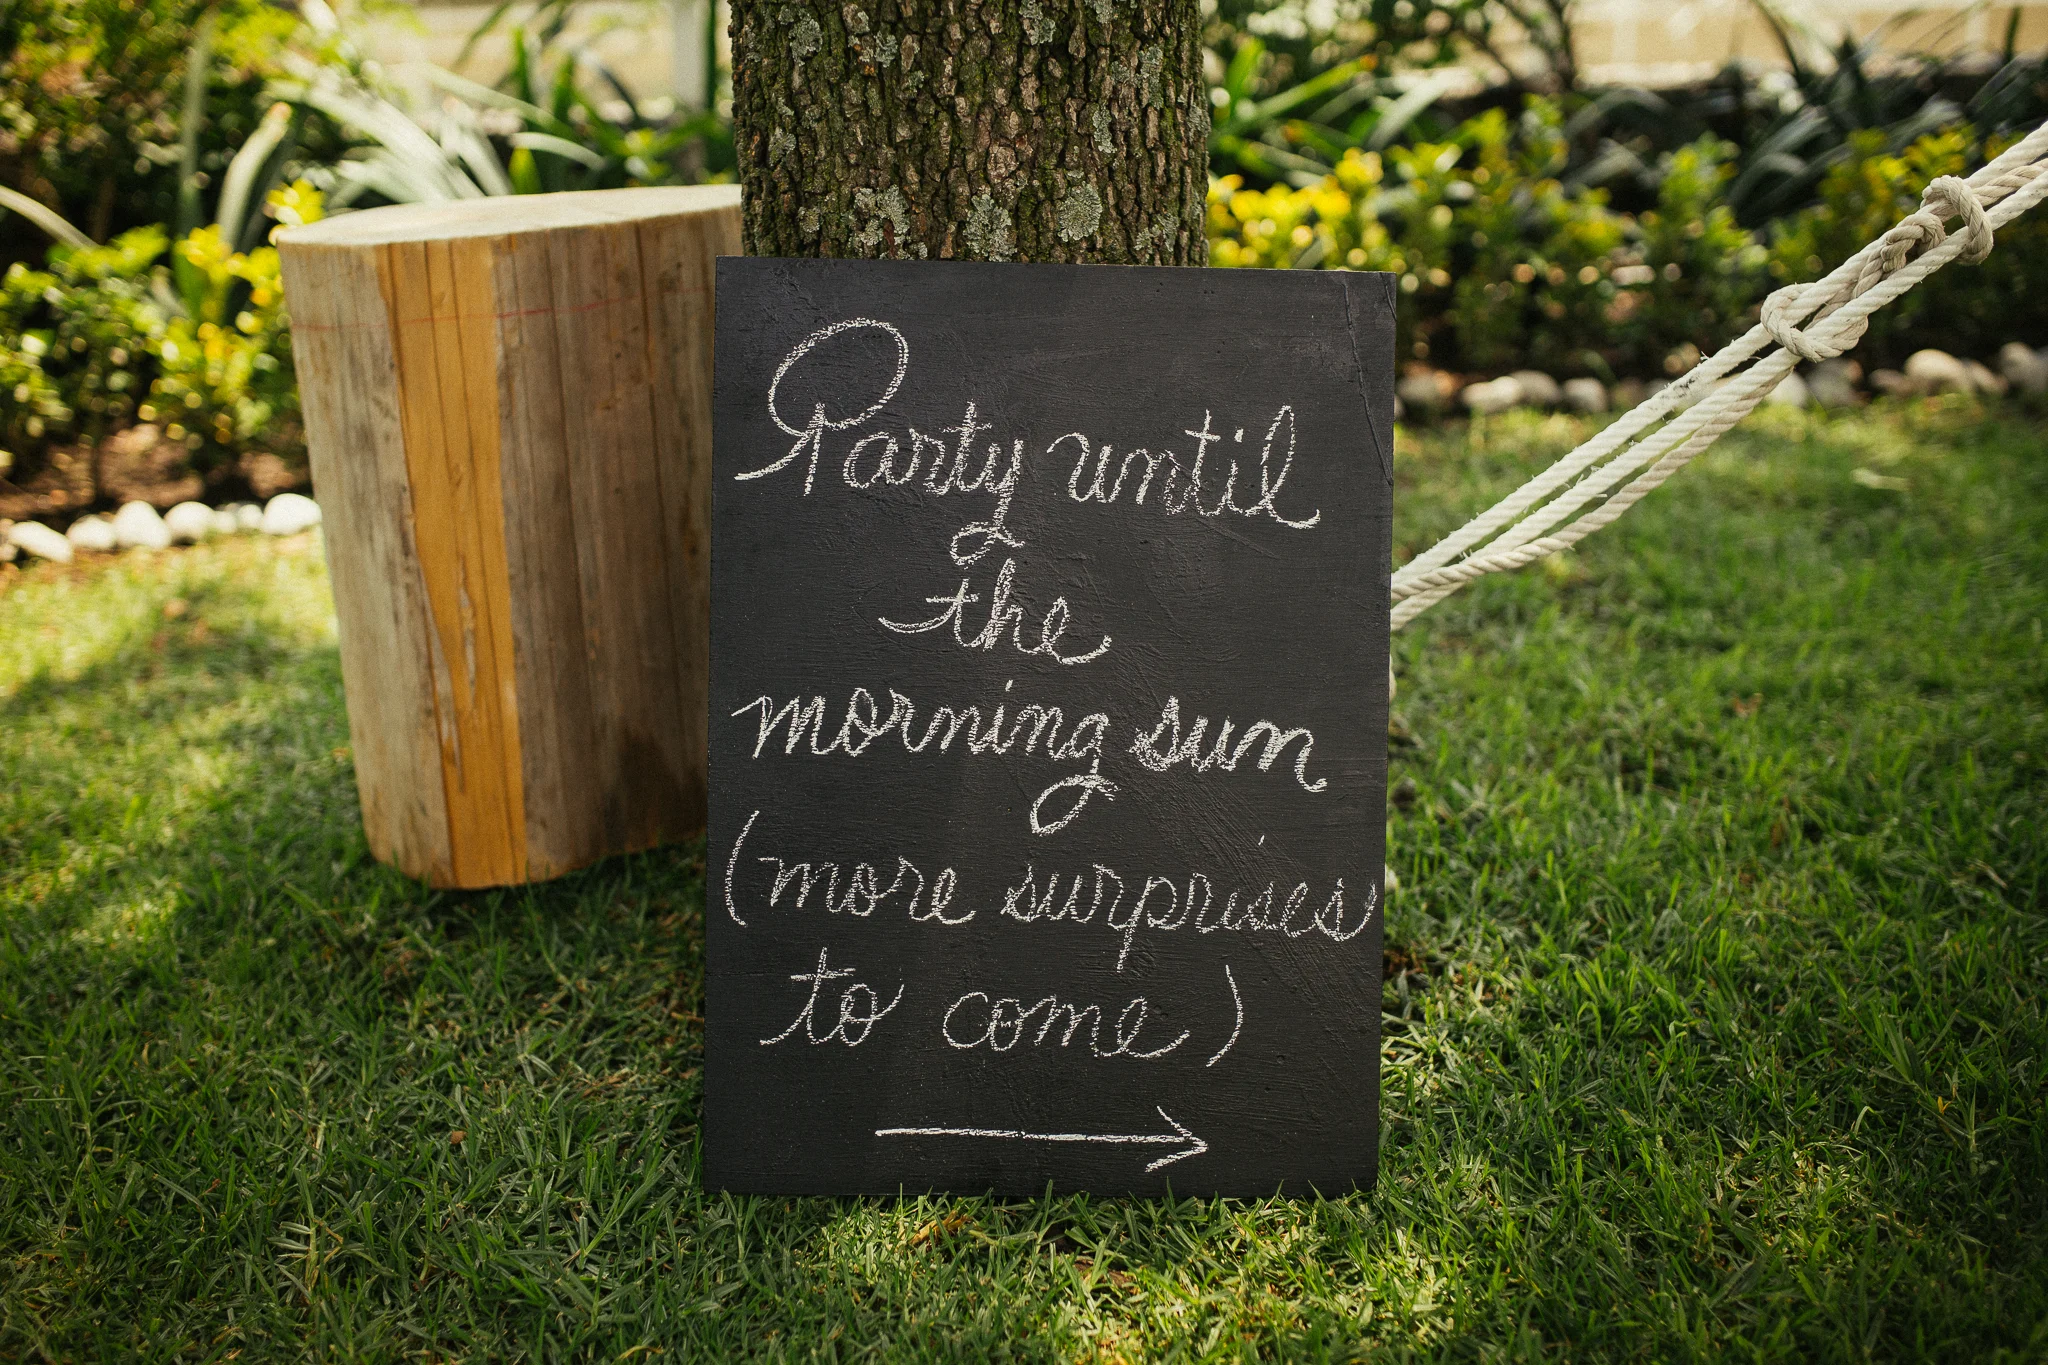 Party until
the
morning sun
(more surprises
to come)